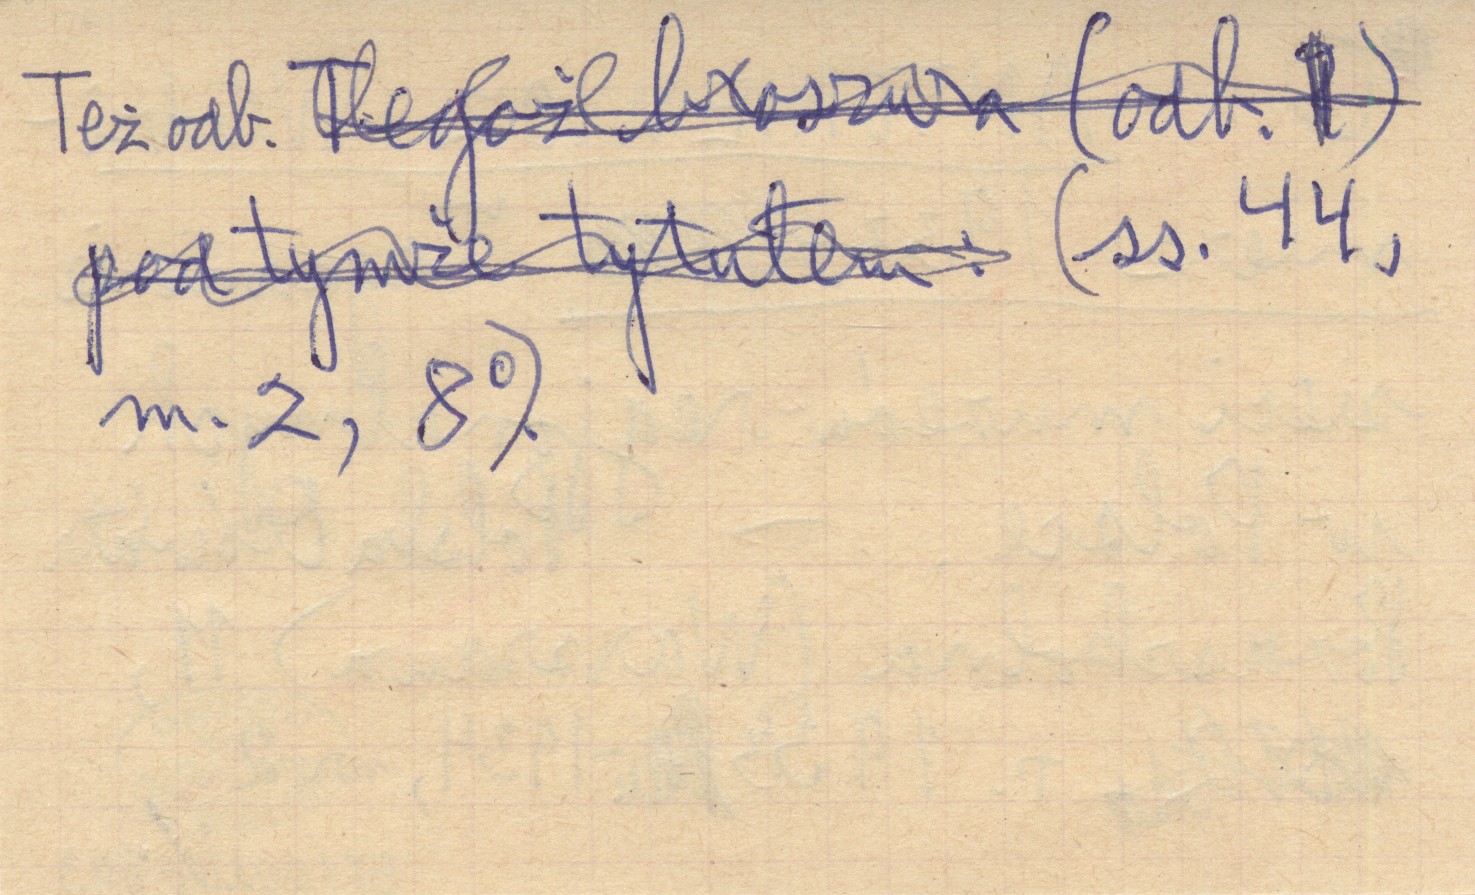 Też odb. Tegoż broszura (odb. 1)
pod tymże tytułem: (ss. 44,
m. 2, 8⁰).